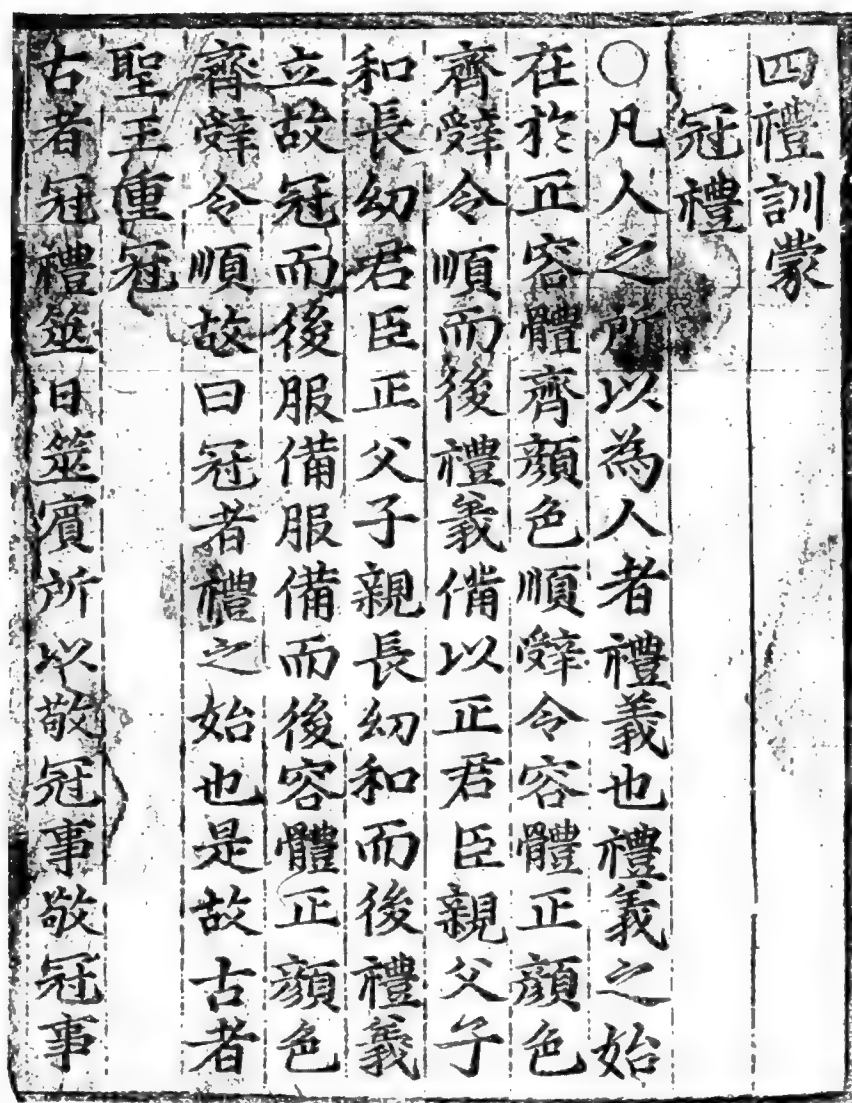 四禮訓蒙
冠禮
○凡人之所以為人者禮義也禮義之始
在於正容體齊顏色順辭令容體正顏色
齊辭令順而後禮義備以正君臣親父子
和長幼君臣正父子親長幼和而後禮義
立故冠而後服備服備而後容體正顏色
齊辭令順故曰冠者禮之始也是故古者
聖王重冠
古者冠禮筮日筮賓所以敬冠事敬冠事